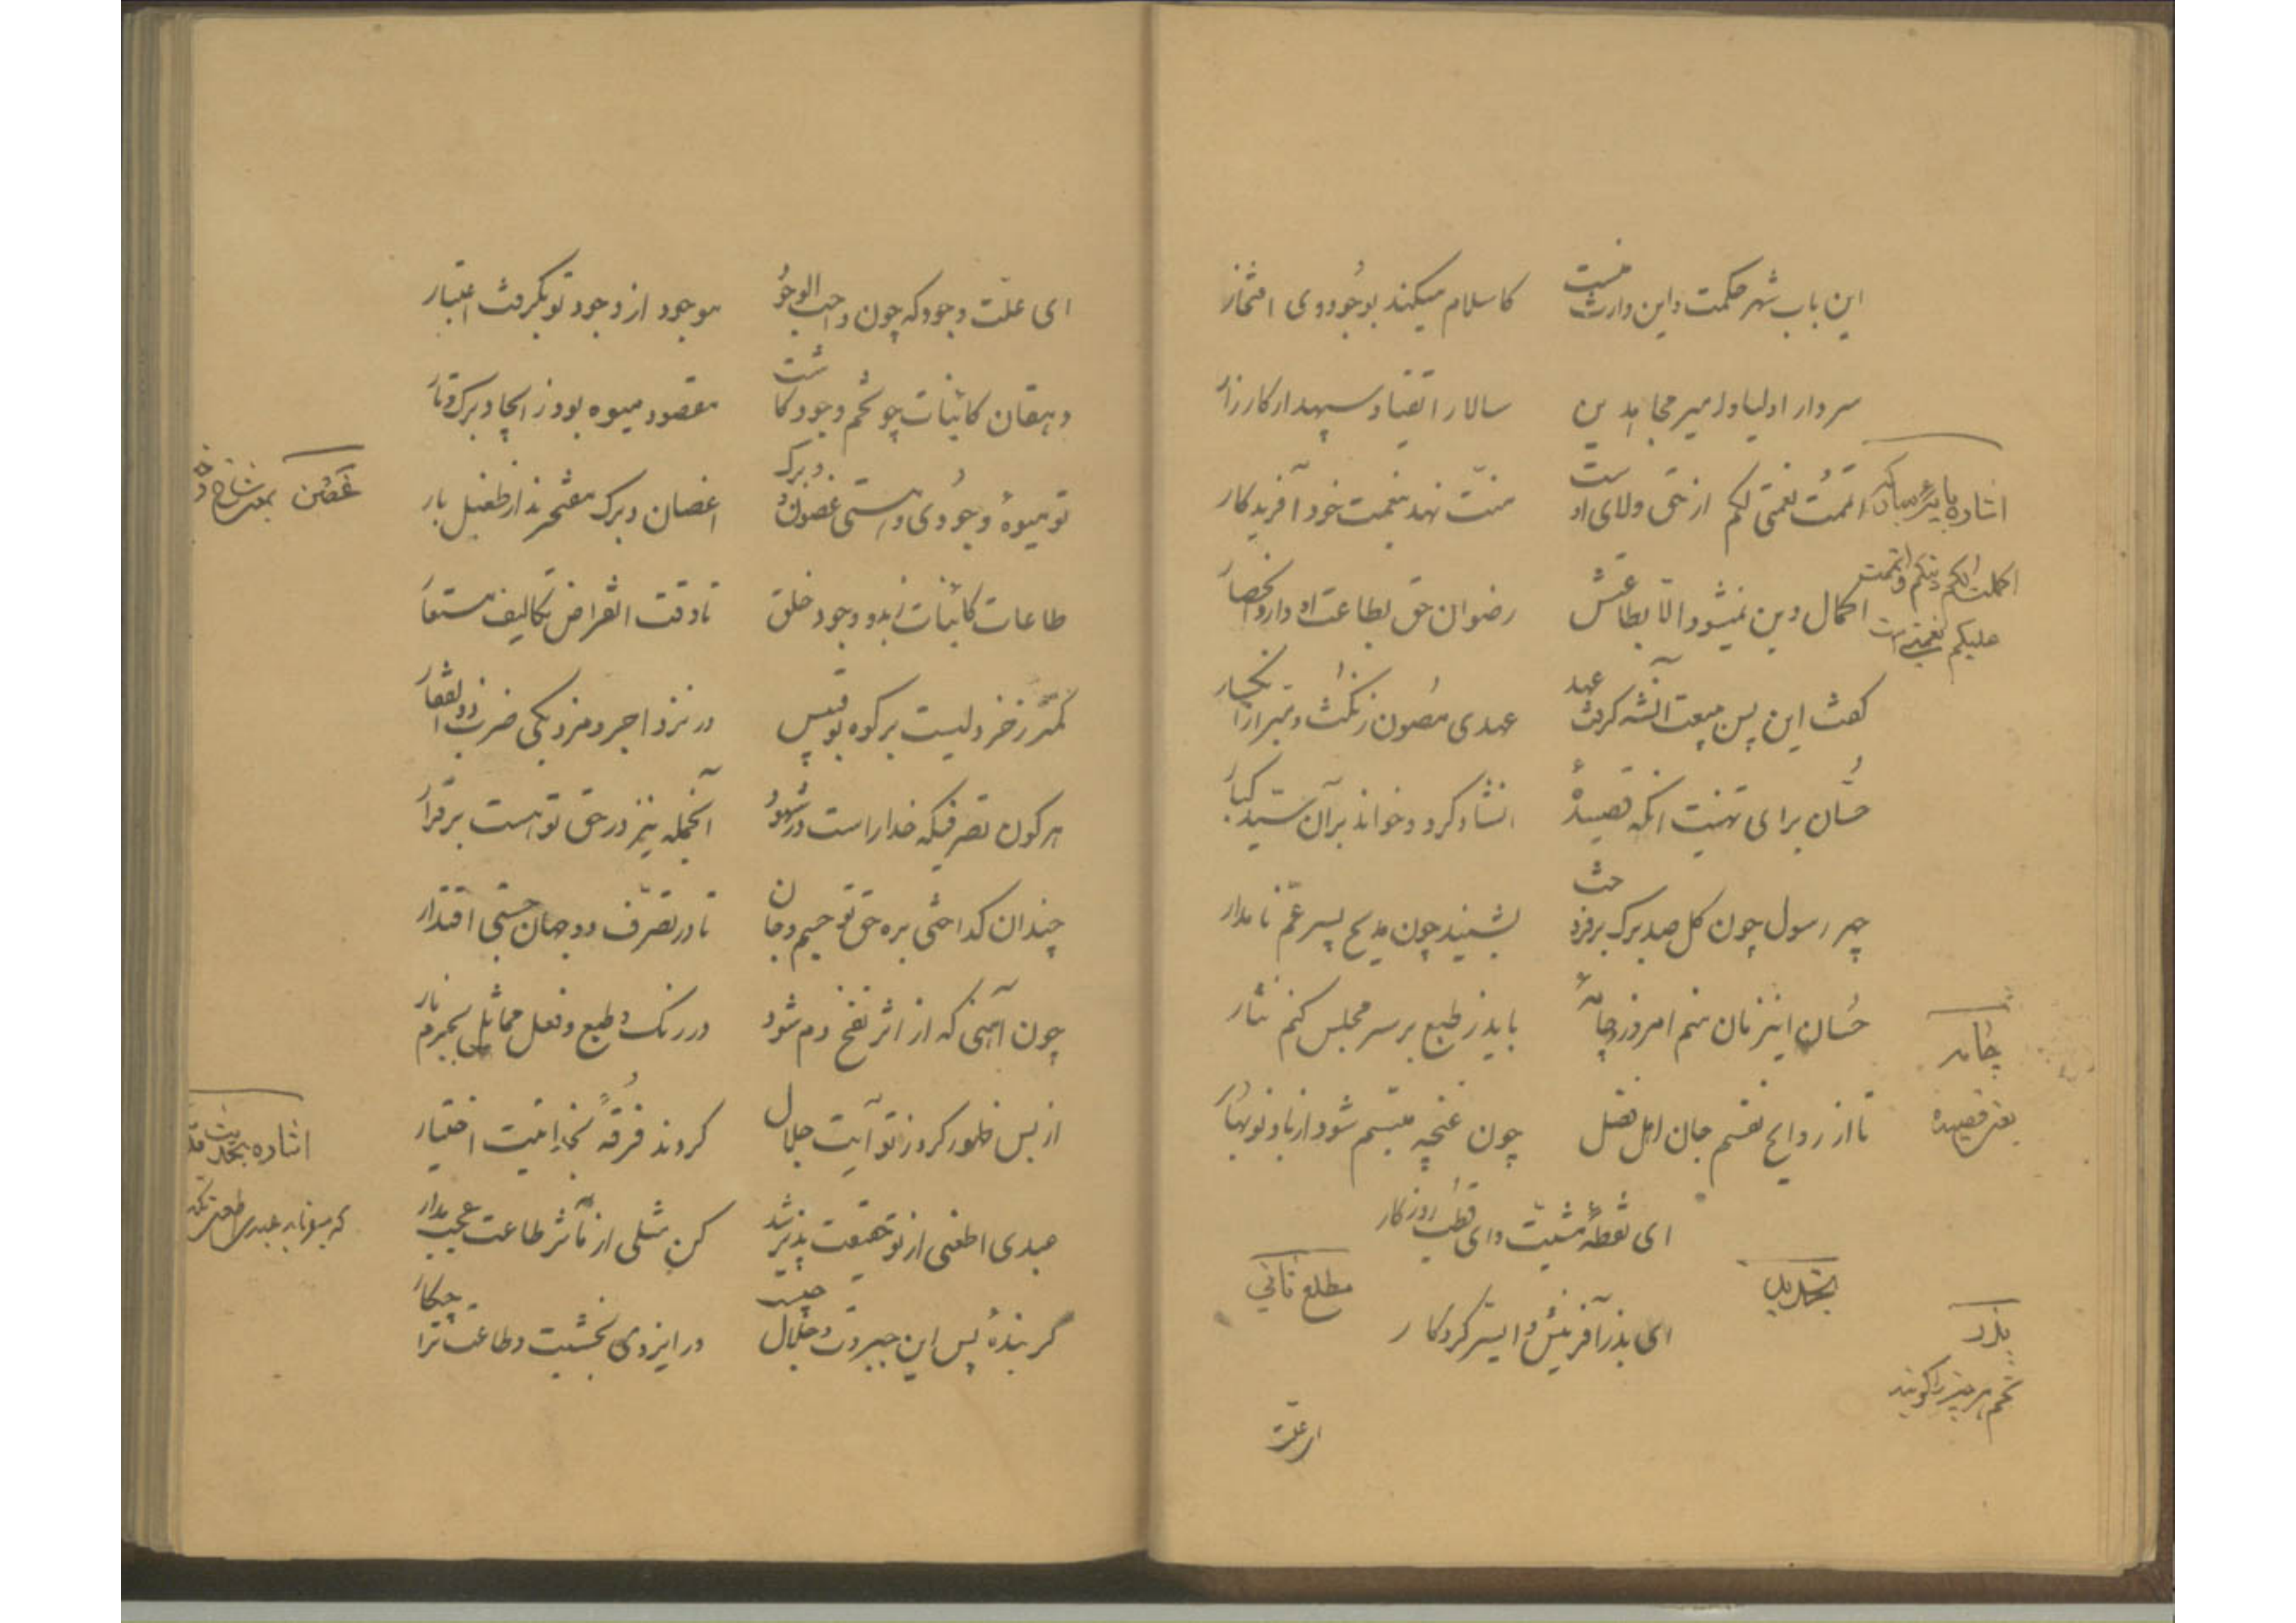 این باب شهر حکمت و این وارث نبیست
کاسلام میکند بوجود وی افتخار
سردار اولیا و امیر مجاهدین
سالار اتقیا و سپهدار کارزار
اتممت نعمتی لکم از حق ولای او
منت نهد بنعمت خود آفریدگار
اکمال دین نمیشود الا بطاعتش
رضوان حق بطاعت او دارد انحصار
گفت این پس بیعت آنشه گرفت عهد
عهدی مصون ز نکث و مبرا ز انحبار
حسان برای تهنیت آنگه قصیدهٔ
انشاد کرد و خواند بر آن سید کبار
چهر رسول چون گل صد برگ برفروخت
بشنید چون مدیح پسر عم نامدار
حسان اینزمان منم امروز و چامهٔ
باید ز طبع بر سر مجلس کنم نثار
تا از روایح نفسم جان اهل فضل
چون غنچه مبتسم شود از باد نوبهار
ای نقطهٔ مشیت و ای قطب روزگار
تجدید
مطلع ثانی
ای بذر آفرینش و ای سر کردگار
ای علت
اشاره بآیه
اکملت لکم دینکم و اتممت
علیکم نعمتی است
چامه
بمعنی قصیده
بذر
تخم هر چیز را گویند
ای علت وجود که چون واجب الوجود
موجود از وجود تو بگرفت اعتبار
دهقان کائنات چو تخم وجود کاشت
مقصود میوه بود ز ایجاد برگ و بار
تو میوهٔ وجودی و هستی غصون و برگ
اغصان و برگ مفتخرند از طفیل بار
طاعات کائنات ز بدو وجود خلق
تا وقت انقراض تکالیف مستعار
کمتر ز خردلیست بر کوه بوقبیس
در نزد اجر و مزد یکی ضرب ذوالفقار
هر گون تصرفیکه خدا راست در شهود
آنجمله نیز در حق تو هست برقرار
چندان گداختی بره حق تو جسم و جان
تا در تصرف دو جهان جستی اقتدار
چون آهنی که از اثر نفخ دم شود
در رنگ و طبع و فعل مماثل بجرم نار
از بس ظهور کرد ز تو آیت جلال
کردند فرقهٔ بخدائیت اختیار
عبدی اطعنی از تو حقیقت پذیر شد
کن مثلی از مآثر طاعت عجب مدار
گر بندهٔ پس این جبروت و جلال چیست
در ایزدی نخشیت و طاعت ترا چکار
غصن بمعنی شاخ
اشاره بحدیث
که میفرماید عبدی اطعنی